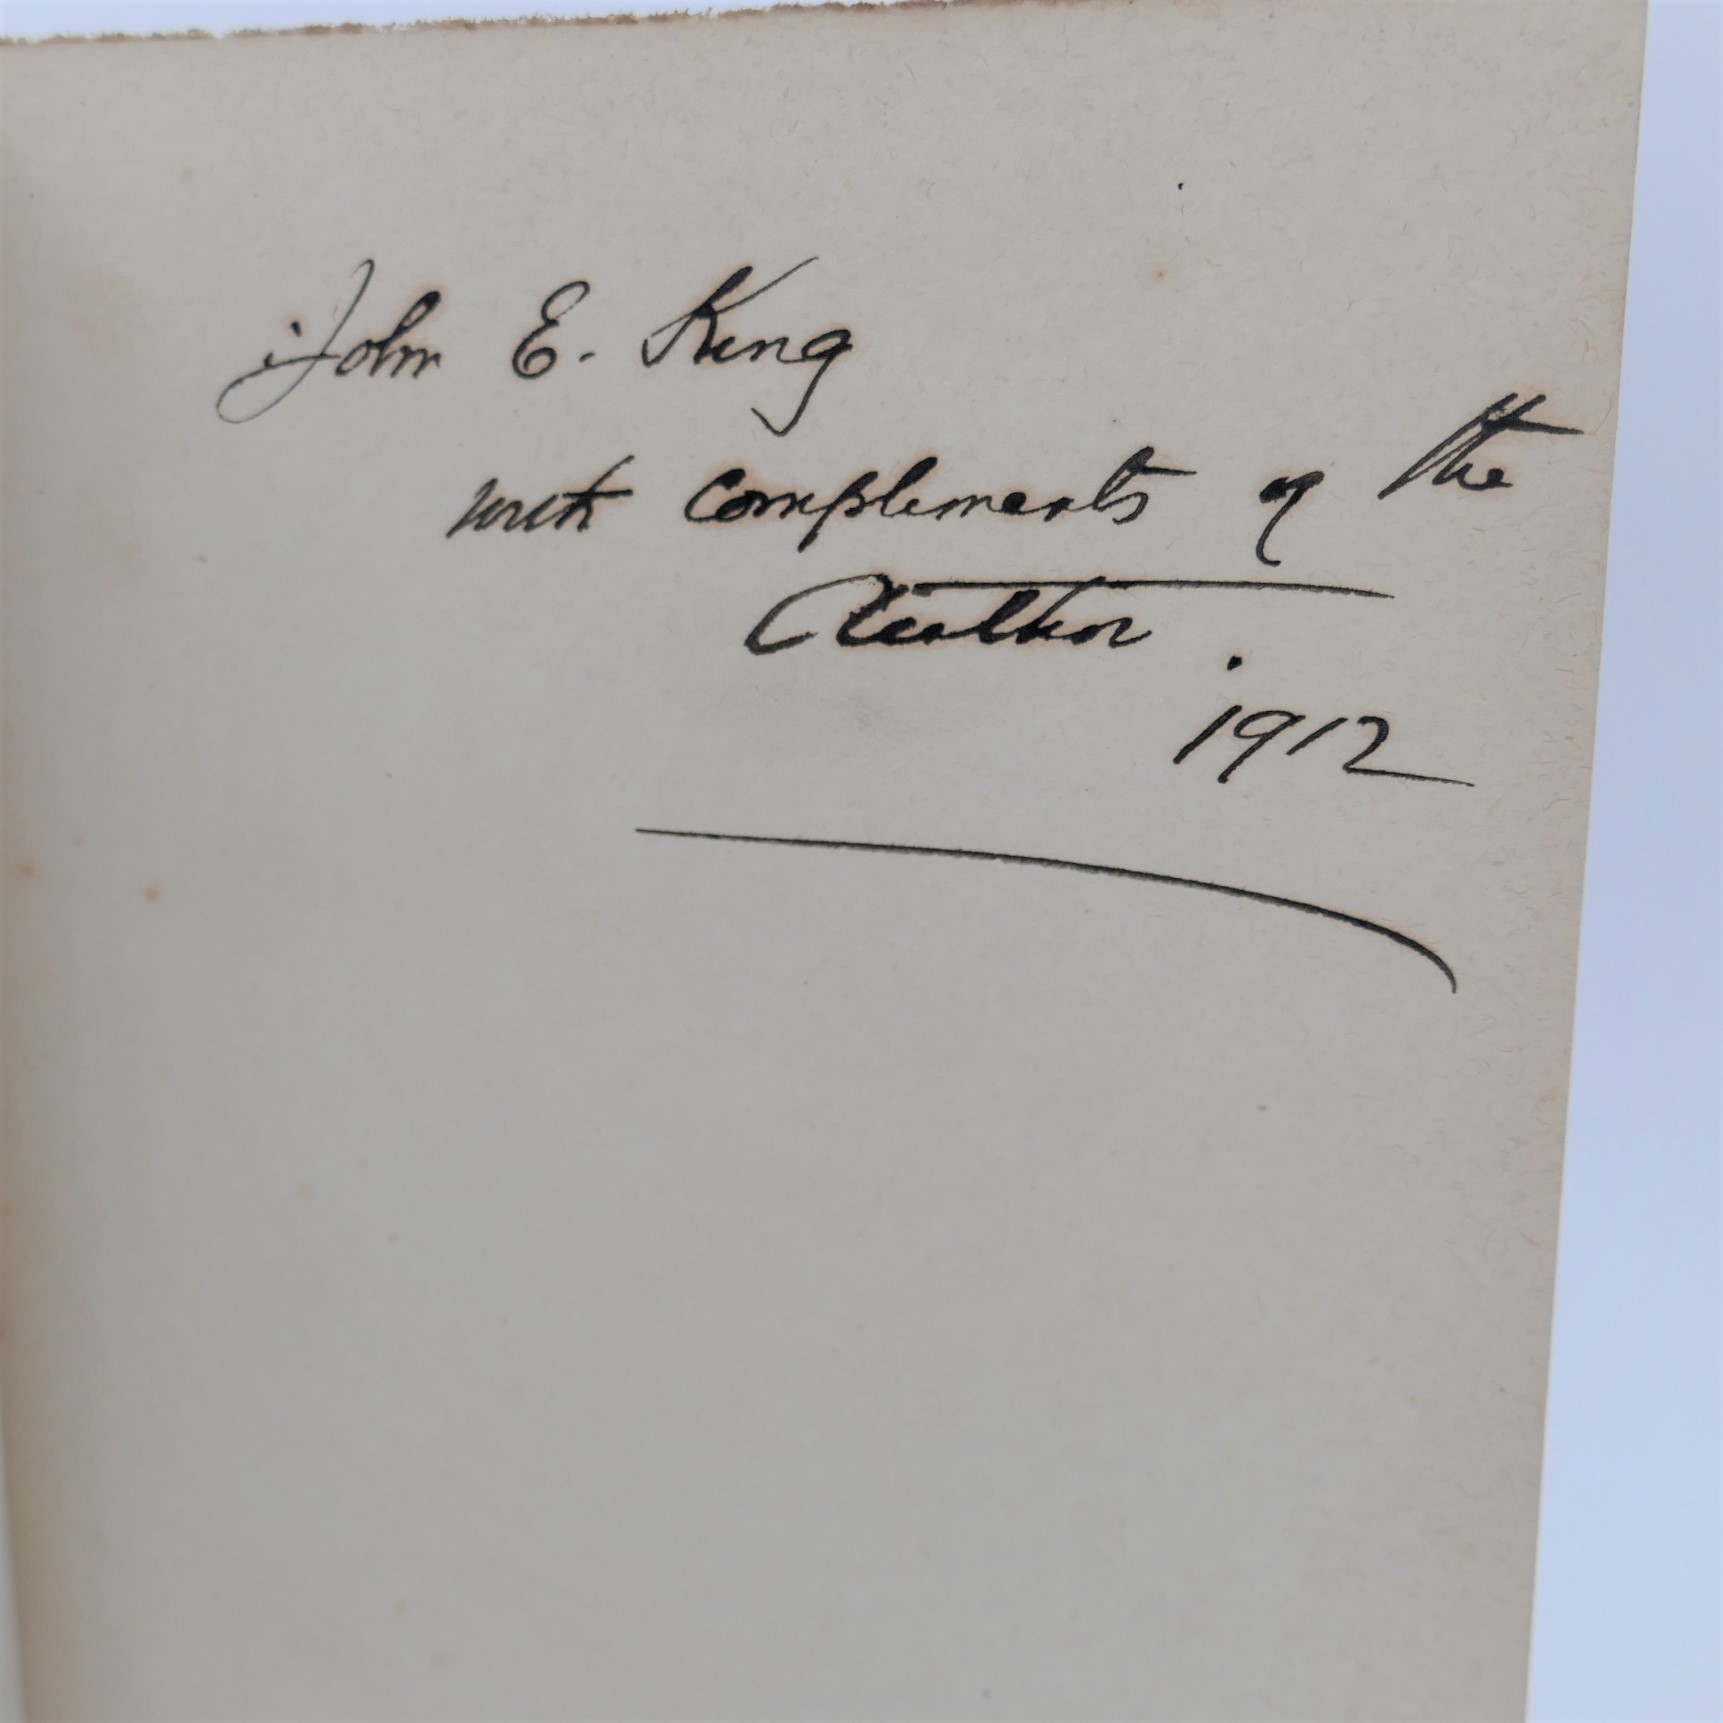 John E. King
with compliments of the
Author.
1912